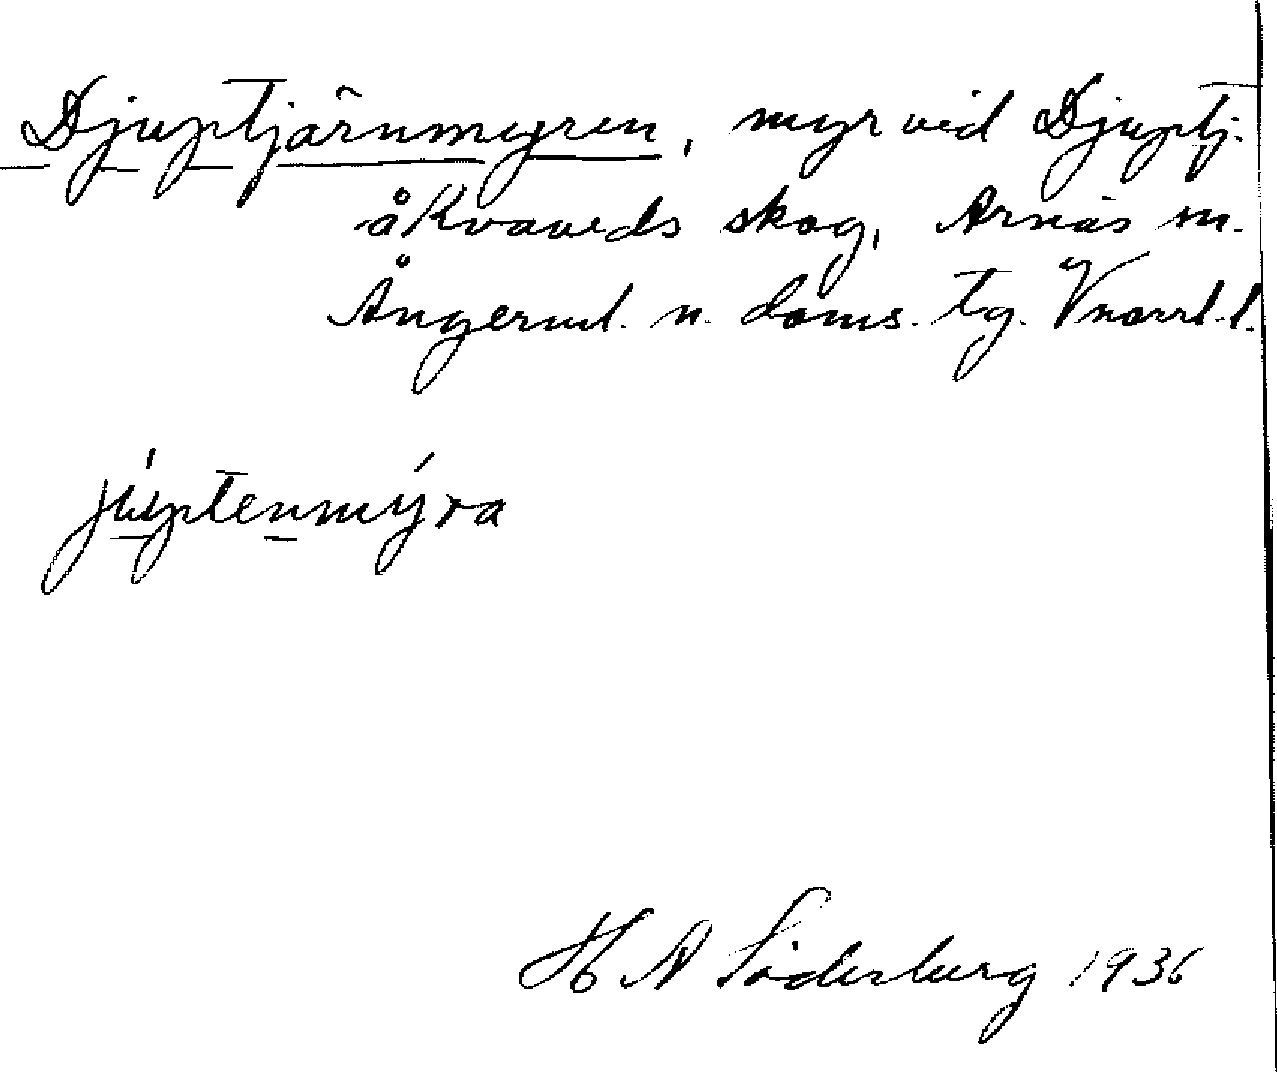 Djuptjärnmyren, myr vid Djuptj.
å Kvaveds skog, Arnäs sn.
Ångerml. n. doms. tg. Vnorrl.l.
júptenmýra
H A Söderberg 1936